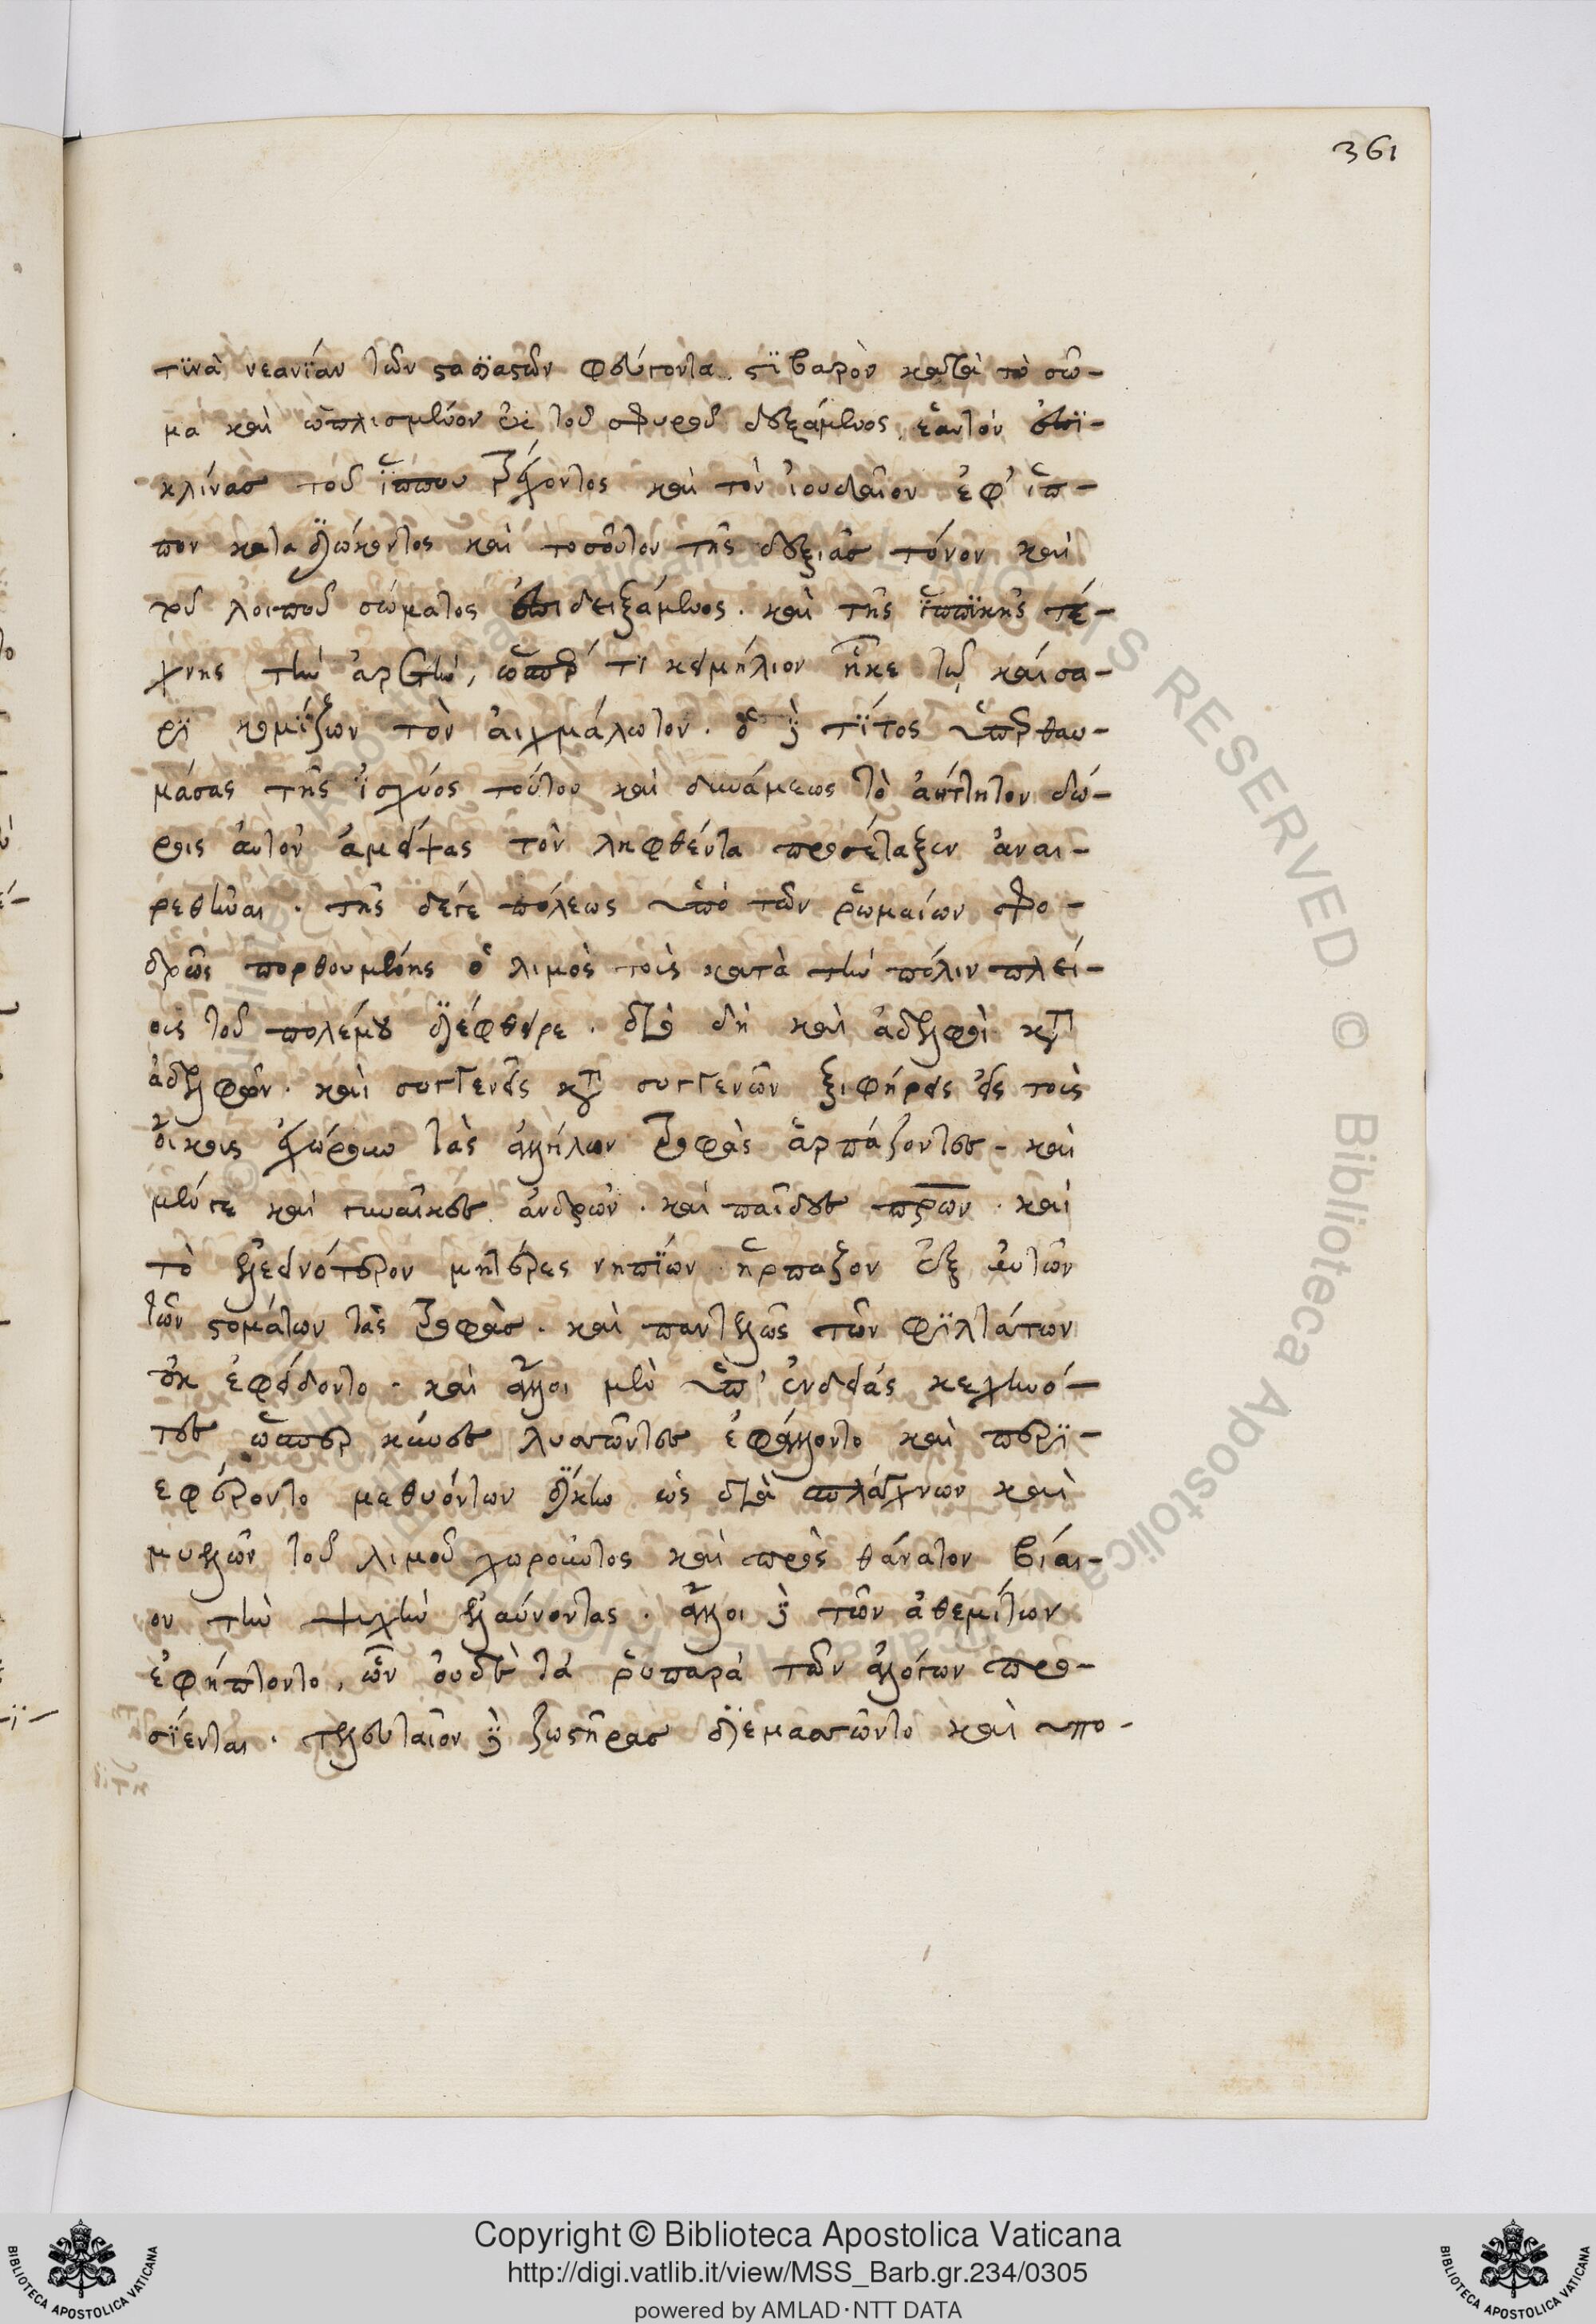 361
τινὰ νεανίαν τῶν στασιαστῶν φεύγοντα. στιβαρὸν κατὰ τὸ σῶ-
μα καὶ ὡπλισμένον ἐκ τοῦ σφυροῦ δεξάμενος, ἑαυτὸν ἐπι-
κλίνας τοῦ ἵππου τρέχοντος καὶ τὸν ἰουδαῖον ἐφ' ἵπ-
πον καταδιώκοντος καὶ τοσοῦτον τῆς δεξιᾶς τόνον καὶ
τοῦ λοιποῦ σώματος ἐπιδειξάμενος. καὶ τῆς ἱππικῆς τέ-
χνης τὴν ἀρετὴν, ὥσπερ τι κειμήλιον ἧκε τῷ καίσα-
ρι κομίζων τὸν αἰχμάλωτον. ὁ δὲ τίτος ὑπερθαυ-
μάσας τῆς ἰσχύος τούτου καὶ δυνάμεως τὸ ἀήττητον δώ-
ροις αὐτὸν ἀμείψας τὸν ληφθέντα προσέταξεν ἀναι-
ρεθῆναι. τῆς δέγε πόλεως ὑπὸ τῶν ῥωμαίων σφο-
δρῶς πορθουμένης ὁ λιμὸς τοὺς κατὰ τὴν πόλιν πλεί-
οις τοῦ πολέμου διέφθειρε. διὸ δὴ καὶ ἀδελφοὶ κατὰ
ἀδελφῶν. καὶ συγγενεῖς κατὰ συγγενῶν ξιφήρεις εἰς τοὺς
οἴκους ἐχώρουν τὰς ἀλλήλων τροφὰς ἁρπάζοντες. καὶ
μέντε καὶ γυναῖκες ἀνδρῶν. καὶ παῖδες πρων. καὶ
τὸ ἐλεεινότερον μητέρες νηπίων ἥρπαζον ἐξ αὐτῶν
τῶν στομάτων τὰς τροφὰς. καὶ παντελῶς τῶν φιλτάτων
οὐκ ἐφείδοντο. καὶ ἄλλοι μὲν ὑπ' ἐνδείας κεχηνό-
τες ὥσπερ κύνες λυσσῶντες ἐφάλλοντο καὶ περι-
εφέροντο μεθυόντων δίκην ὡς διὰ σπλάγχνων καὶ
μυελῶν τοῦ λιμοῦ χωροῦντος καὶ πρὸς θάνατον βίαι-
ον τὴν ψυχὴν ἐλαύνοντας. ἄλλοι δὲ τῶν ἀθεμίτων
ἐφήπτοντο, ὧν οὐδὲ τὰ ῥυπαρὰ τῶν ἀλόγων προ-
σίενται. τελευταῖον δὲ ζωστῆρας διεμασσῶντο καὶ υπο-
Copyright © Biblioteca Apostolica Vaticana
http://digi.vatlib.it/view/MSS_Barb.gr.234/0305
powered by AMLAD·NTT DATA
BIBLIOTECA APOSTOLICA VATICANA
BIBLIOTECA APOSTOLICA VATICANA